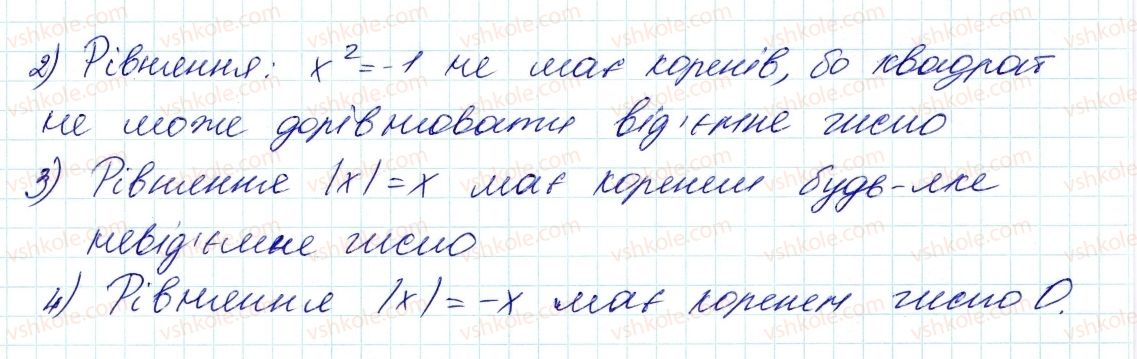 2) Рівняння: x² = -1 не має коренів, бо квадрат
не може дорівнювати від'ємне число
3) Рівняння |x| = x має коренем будь-яке
невід'ємне число
4) Рівняння |x| = -x має коренем число 0.